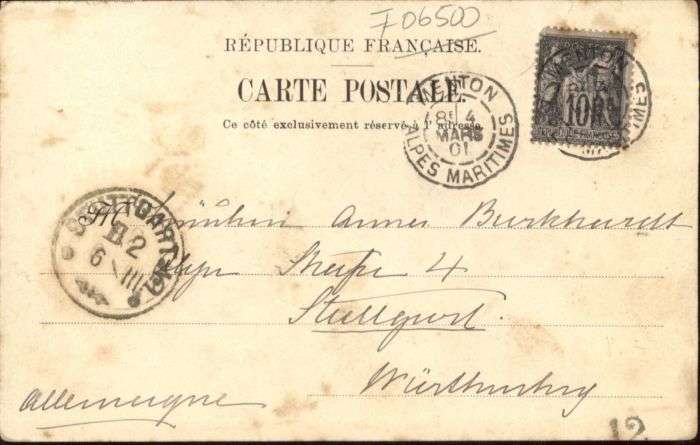 F06500
RÉPUBLIQUE FRANÇAISE.
CARTE POSTALE.
Ce côté exclusivement réservé à l'adresse.
MENTON
4
MARS
01
ALPES MARITIMES
10
MENTON
MARITIMES
STUTTGART
2
6 III
M
Fräulein Burkhardt
4
Stuttgart.
Württemberg
Allemagne
12